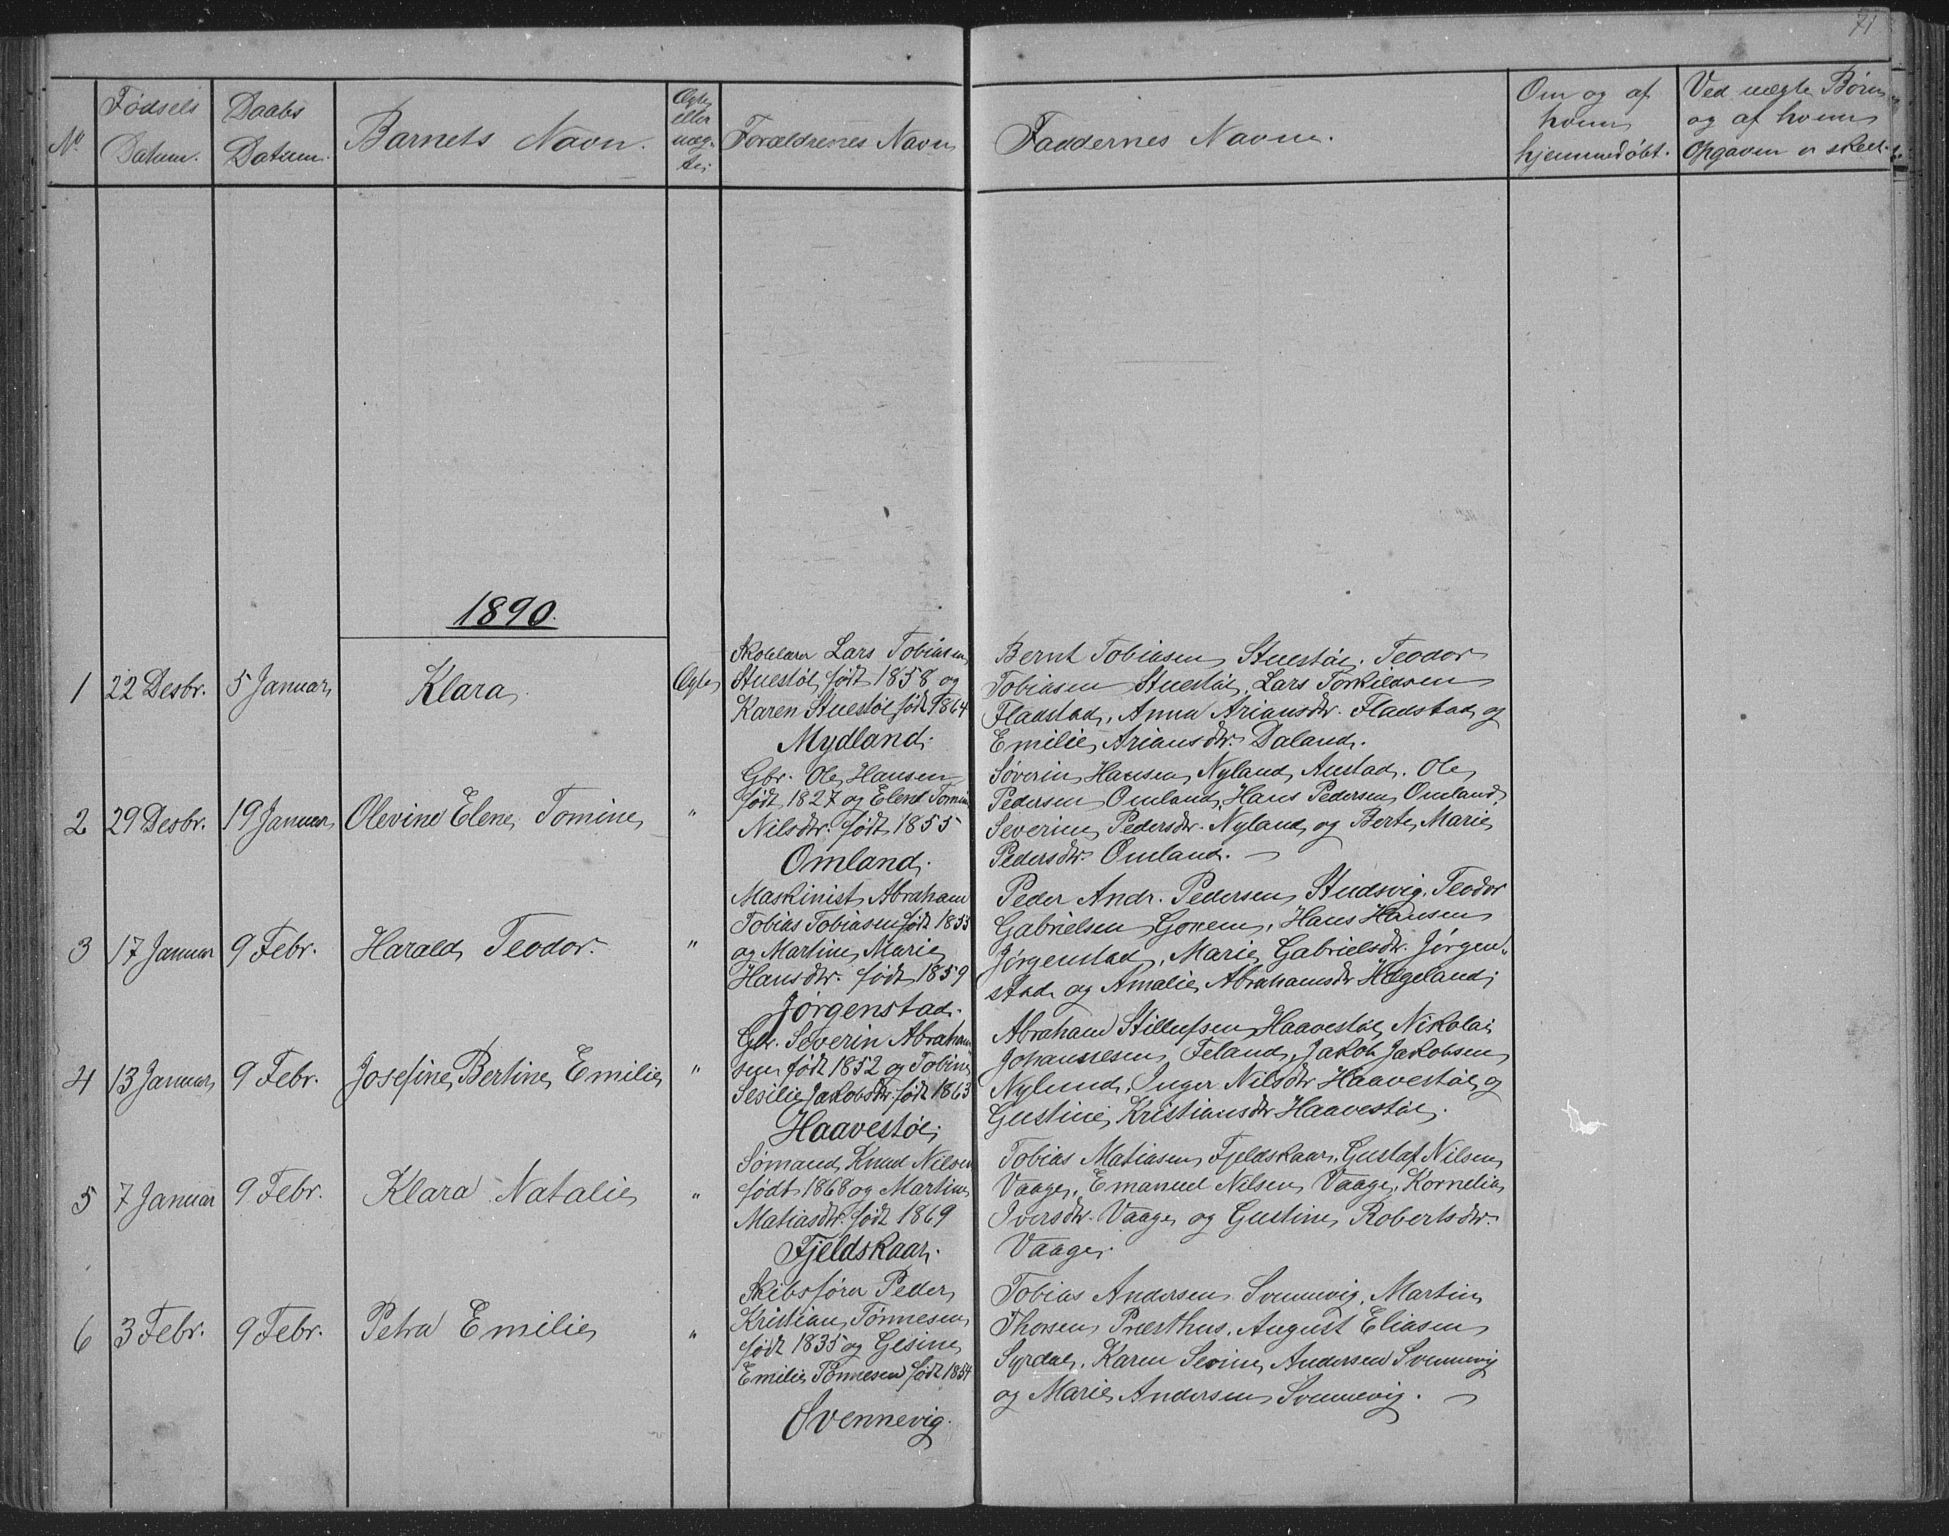 71
No.
Fødsels
Datum.
Daabs
Datum.
Barnets Navn.
Ægte
eller
uæg-
te
Forældrenes Navn
Faddernes Navne.
Om og af
hvem
hjemmedøbt.
Ved uægte Børn
og af hvem
Opgaven er skeet.
1890.
1
22 Desbr.
5 Januar
Klara
Ægte
Skolelærer Lars Tobiasen
Stuestøl født 1858 og
Karen Stuestøl født 1864
Mydland.
Bernt Tobiasen Stuestøl. Teodor
Tobiasen Stuestøl, Lars Torkildsen
Fladstad, Anna Ariansdtr. Fladstad og
Emilie Ariansdtr. Daland.
2
29 Desbr.
19 Januar
Olevine Elene Tomine
"
Gbr. Ole Hansen
født 1827 og Elene Tomine
Nilsdtr. født 1855
Omland.
Søverin Hansen Nyland, Austad. Ole
Pedersen Omland, Hans Pedersen Omland,
Severine Pedersdtr. Nyland og Berte Marie
Pedersdtr. Omland. —
3
17 Januar
9 Febr.
Harald Teodor.
"
Maskinist Abraham
Tobias Tobiasen født 1855
og Martine Marie
Hansdtr. født 1859
Jørgenstad.
Peder Andr. Pedersen Studsvig, Teodor
Gabrielsen Gonem, Hans Hansen
Jørgenstad, Marie Gabrielsdtr. Jørgen-
stad og Amalie Abrahamsdtr Hægeland.
4
13 Januar
9 Febr.
Josefine Bertine Emilie
"
Gbr. Severin Abraham
sen født 1852 og Tobine
Sesilie Jakobsdtr. født 1863
Haavestøl.
Abraham Stillufsen Haavestøl, Nikolai
Johannesen Feland, Jakob Jakobsen
Nylund, Inger Nilsdtr Haavestøl og
Gustine Kristiansdtr Haavestøl.
5
7 Januar
9 Febr.
Klara Natalie
"
Sømand Knud Nilsen
født 1868 og Martine
Matiasdtr. født 1869
Fjeldskaar.
Tobias Matiasen Fjeldskaar, Gustaf Nilsen
Vaage, Emanuel Nilsen Vaage, Kornelia
Iversdtr. Vaage og Gustine Robertsdtr.
Vaage.
6
3 Febr.
9 Febr.
Petra Emilie
"
Skibsfører Peder
Kristian Tønnesen
født 1835 og Gesine
Emilie Tønnesen født 1854
Svennevig.
Tobias Andersen Svennevig, Martin
Thorsen Præsthus, August Eliasen
Syrdal, Karen Sevine Andersen Svennevig
og Marie Andersen Svennevig. —